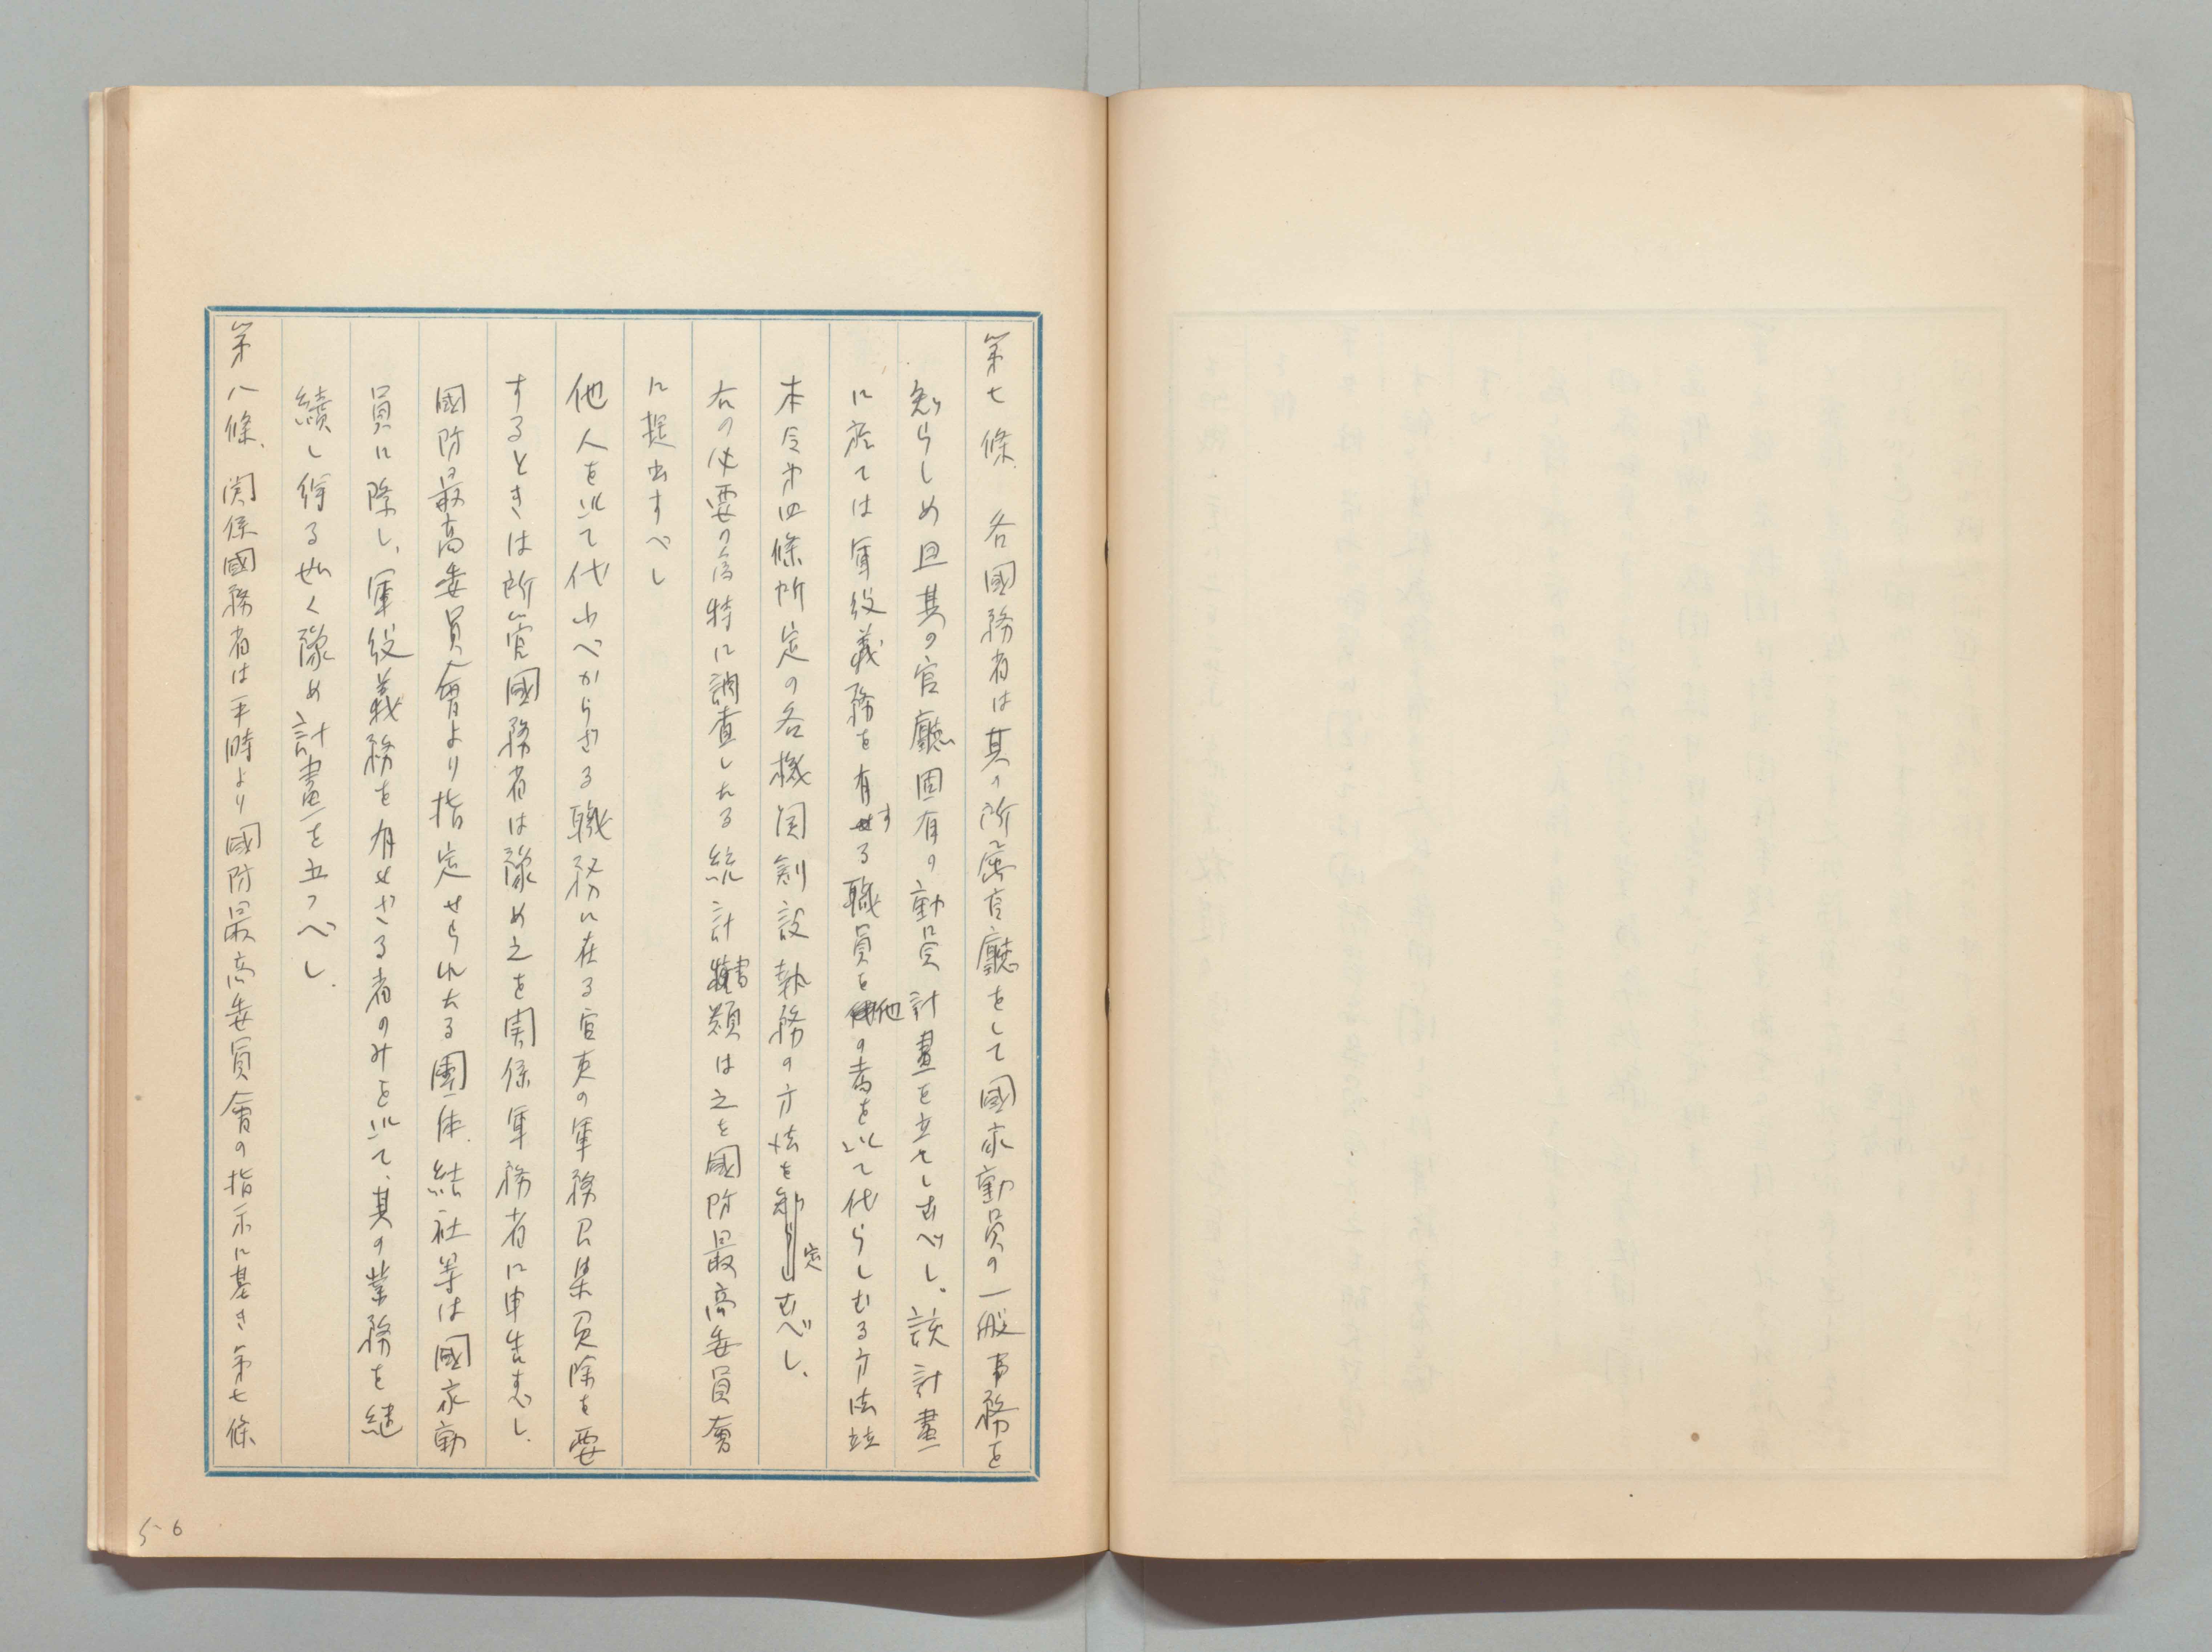 第七條、各國務者は其の所屬官廳をして國家動員の一般事務を
知らしめ且其の官廳固有の動員計畫を立てしむべし。該計畫
に於ては軍役義務を有する職員を他の者を以て代らしむる方法並
本令第四條所定の各機関創設執務の方法を定むべし、
右の必要の為特に調査したる統計書類は之を國防最高委員會
に提出すべし
他人を以て代ふべからざる職務に在る官吏の軍務召集免除を要
するときは所管國務者は豫め之を関係軍務者に申告すべし、
國防最高委員會より指定せられたる團体、結社等は國家動
員に際し、軍役義務を有せざる者のみを以て、其の業務を継
續し得る如く豫め計畫を立つべし、
第八條、関係國務者は平時より國防最高委員會の指示に基き第七條
56